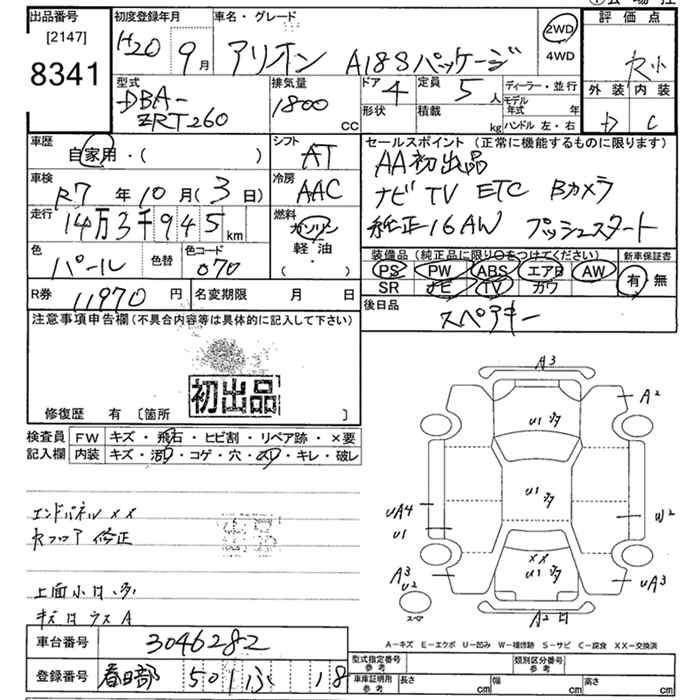 出品番号
[2147]
8341
初度登録年月
H20 9月
車名・グレード
アリオン A18Sパッケージ
2WD
4WD
評価点
外装 内装
C
型式
DBA-
ZRT260
排気量
1800
CC
ドア
4
形状
定員
5人
積載
kg
ディーラー・並行
モデル年式 年
ハンドル 左・右
車歴
自家用・( )
シフト
AT
車検
R7年10月(3日)
冷房
AAC
走行
14万3千945km
燃料
ガソリン
軽・油
・( )
色
パール
色替
色コード
070
R券
11970円
名変期限 月 日
セールスポイント(正常に機能するものに限ります)
AA初出品
ナビ TV ETC Bカメラ
純正16AW プッシュスタート
装備品(純正品に限り○をつけてください)
PS PW ABS エアB AW
SR ナビ TV カワ
新車保証書
有 無
後日品
スペアキー
注意事項申告欄(不具合内容等は具体的に記入して下さい)
初出品
修復歴 有 〔箇所 〕
検査員記入欄
FW キズ・飛石・ヒビ割・リペア跡・×要
内装 キズ・汚・コゲ・穴・スリ・キレ・破レ
エンドパネル ××
Rフロア 修正
上面小凹多
キズ凹ウスA
A3
A2
U1 多
U1 多
UA4
U1
W2
××
U1 多
A3
U2
UA3
A2
スペア
A-キズ E-エクボ U-凹み W-補修跡 S-サビ C-腐食 XX-交換済
車台番号
3046282
登録番号
春日部 501 ふ 18
型式指定番号
参考
類別区分番号
参考
車庫証明用
参考
長さ cm 幅 cm 高さ cm